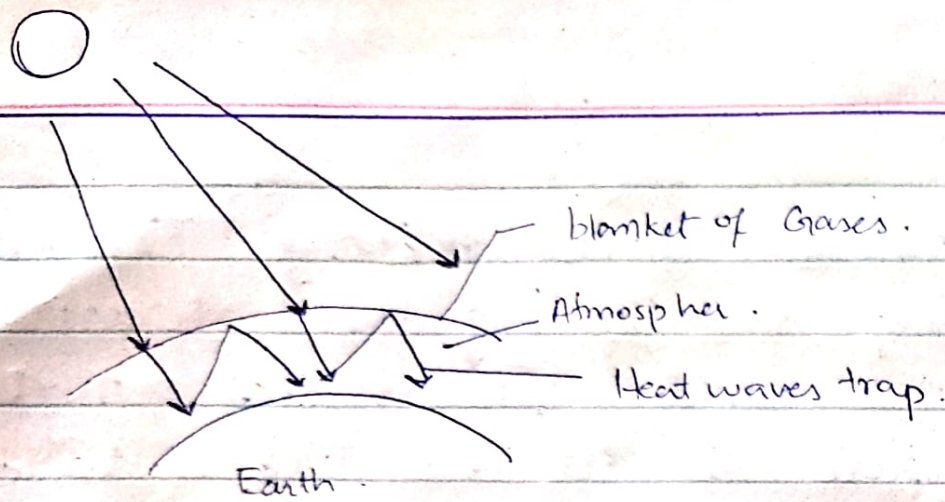 blanket of Gases.
Atmospher.
Heat waves trap.
Earth.